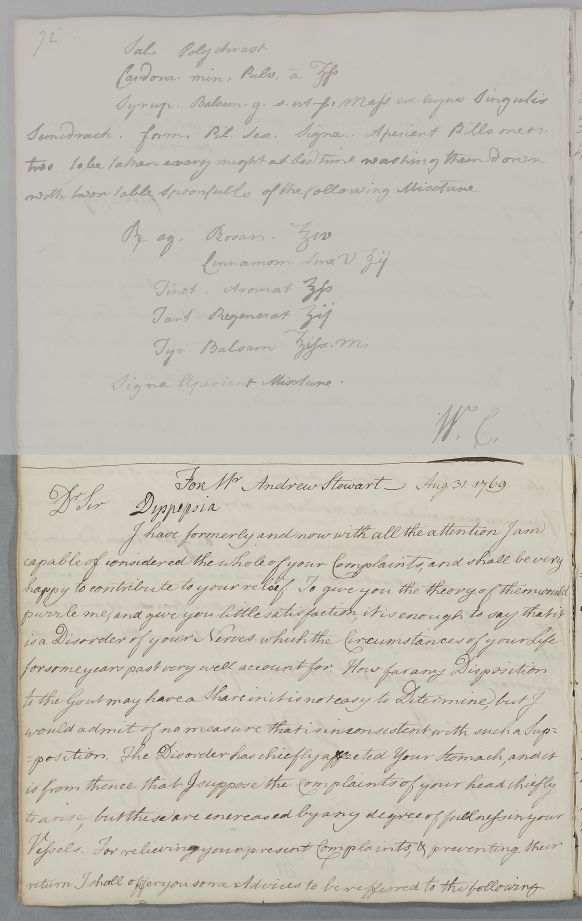 72
Sal. Polychrest
Cardam. min. Pulv. a ʒſs
Syrup. Balsam. q. s. ut f. Maſs ex cujus Singulis
form. Pil. Sex. Signa. Aperient Pills one or
two to be taken every night at bed time washing them down
with two table spoonfulls of the following Mixture
℞ aq. Rosar. ℥iv
Cinnamom sine V ℥ij
Tinct. Aromat ℥ſs
Tart Regenerat ʒij
Syr Balsam ℥iſs. M.
Signa Aperient Mixture.
W. C.
For Mr Andrew Stewart Aug. 31. 1769.
Dr Sir Dyspepsia
I have formerly and now with all the attention I am
capable of considered the whole of your Complaints, and shall be very
happy to contribute to your relief. To give you the theory of them would
puzzle me, and give you little satisfaction, it is enough to say that it
is a Disorder of your Nerves which the Circumstances of your Life
for some years past very well account for. How far any Disposition
to the Gout may have a Share in it is not easy to Ditermine, but I
would admit of no measure that is inconsistent with such a Sup=
=position. The Disorder has chiefly affected Your Stomach, and it
is from thence that I suppose the Complaints of your head chiefly
to arise, but these are encreased by any degree of fullness in your
Veſsels. For relieving your present Complaints, & preventing their
return I shall offer you some Advices to be referred to the following